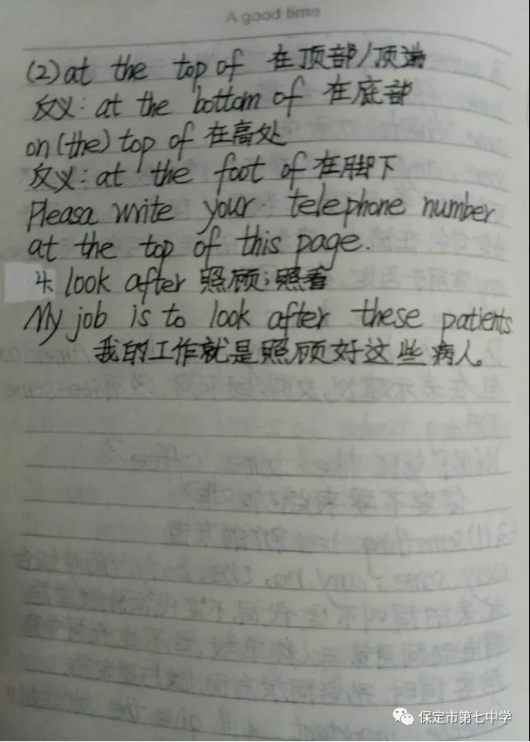 A good time
(2) at the top of 在顶部/顶端
反义: at the bottom of 在底部
on (the) top of 在高处
反义: at the foot of 在脚下
Pleasa write your telephone number
at the top of this page.
4. look after 照顾;照看
My job is to look after these patients
我的工作就是照顾好这些病人。
保定市第七中学